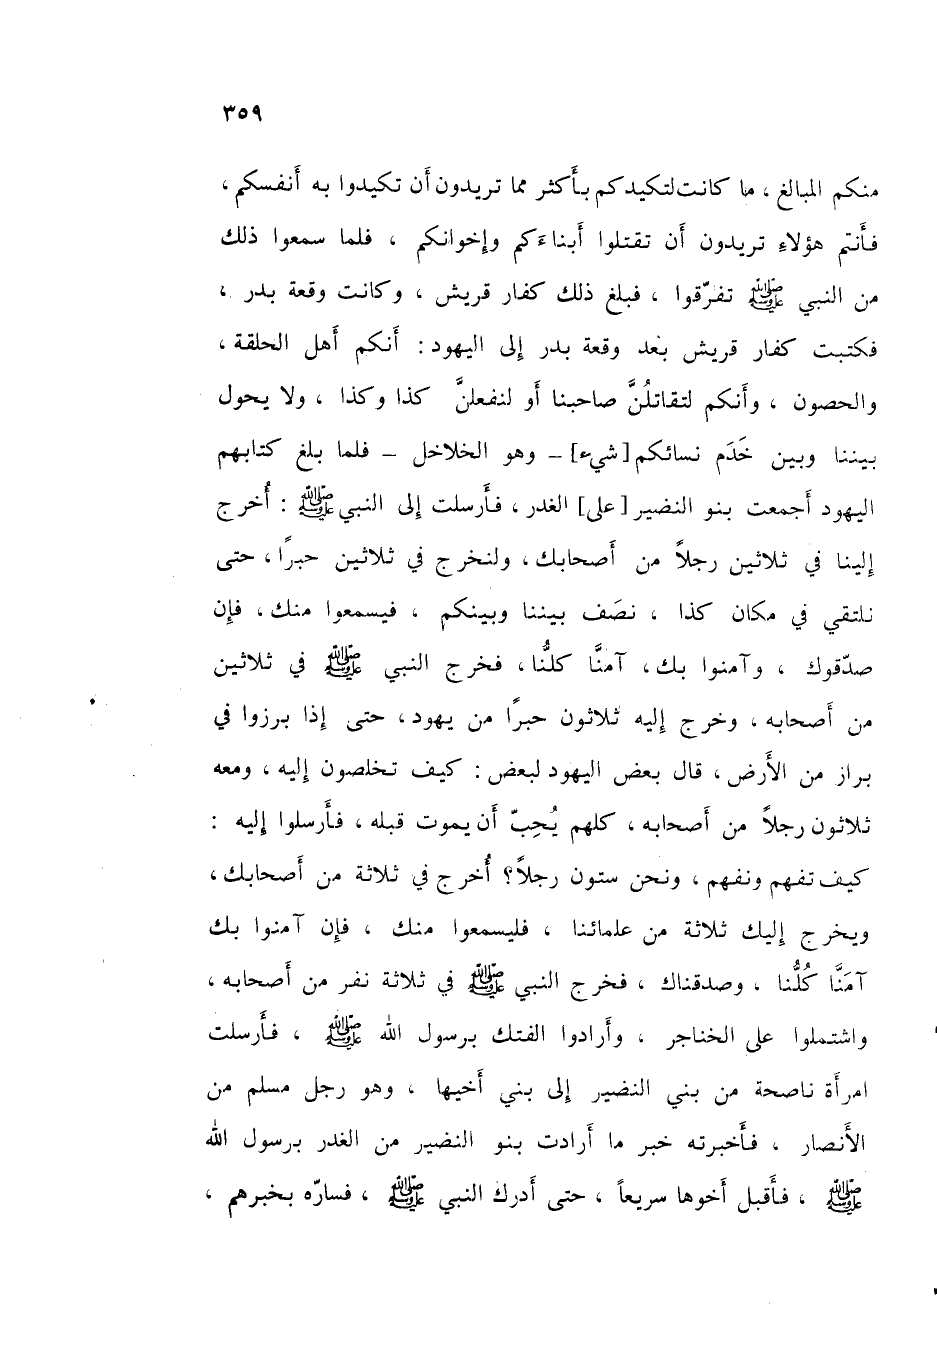 ٣٥٩
منكم المبالغ ، ما كانت لتكيدكم بأكثر مما تريدون أن تكيدوا به أنفسكم ،
فأنتم هؤلاء تريدون أن تقتلوا أبناءكم وإخوانكم ، فلما سمعوا ذلك
من النبي ﷺ تفرّقوا ، فبلغ ذلك كفار قريش ، وكانت وقعة بدر ،
فكتبت كفار قريش بعد وقعة بدر إلى اليهود : أنكم أهل الحلقة ،
والحصون ، وأنكم لتقاتلُنَّ صاحبنا أو لنفعلنَّ كذا وكذا ، ولا يحول
بيننا وبين خَدَم نسائكم [شيء] – وهو الخلاخل – فلما بلغ كتابهم
اليهود أجمعت بنو النضير [على] الغدر ، فأرسلت إلى النبي ﷺ : أُخرج
إلينا في ثلاثين رجلاً من أصحابك ، ولنخرج في ثلاثين حبرًا ، حتى
نلتقي في مكان كذا ، نصَف بيننا وبينكم ، فيسمعوا منك ، فإن
صدّقوك ، وآمنوا بك ، آمنَّا كلُّنا ، فخرج النبي ﷺ في ثلاثين
من أصحابه ، وخرج إليه ثلاثون حبرًا من يهود ، حتى إذا برزوا في
براز من الأرض ، قال بعض اليهود لبعض : كيف تخلصون إليه ، ومعه
ثلاثون رجلاً من أصحابه ، كلهم يُحِبّ أن يموت قبله ، فأرسلوا إليه :
كيف تفهم ونفهم ، ونحن ستون رجلاً؟ أُخرج في ثلاثة من أصحابك ،
ويخرج إليك ثلاثة من علمائنا ، فليسمعوا منك ، فإن آمنوا بك
آمَنَّا كُلُّنا ، وصدقناك ، فخرج النبي ﷺ في ثلاثة نفر من أصحابه ،
واشتملوا على الخناجر ، وأرادوا الفتك برسول الله ﷺ ، فأرسلت
امرأة ناصحة من بني النضير إلى بني أخيها ، وهو رجل مسلم من
الأنصار ، فأخبرته خبر ما أرادت بنو النضير من الغدر برسول الله
ﷺ ، فأقبل أخوها سريعاً ، حتى أدرك النبي ﷺ ، فسارّه بخبرهم ،